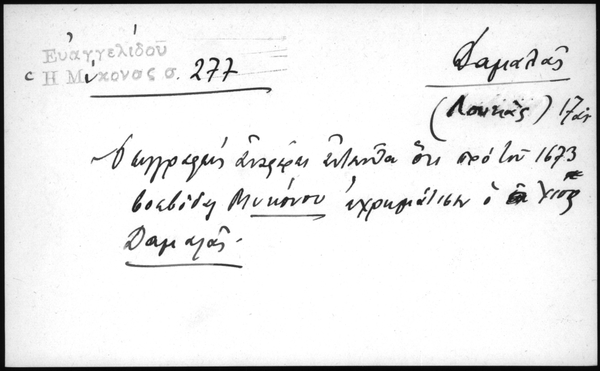 Εὐαγγελίδου
Ἡ Μύκονος σ. 277
Δαμαλᾶς
(Λουκᾶς) 17ος
Ὁ συγγραφεύς ἀναφέρει ἐνταῦθα ὅτι πρό τοῦ 1673
βοεβόδας Μυκόνου ἐχρημάτισεν ὁ Χῖος
Δαμαλᾶς.